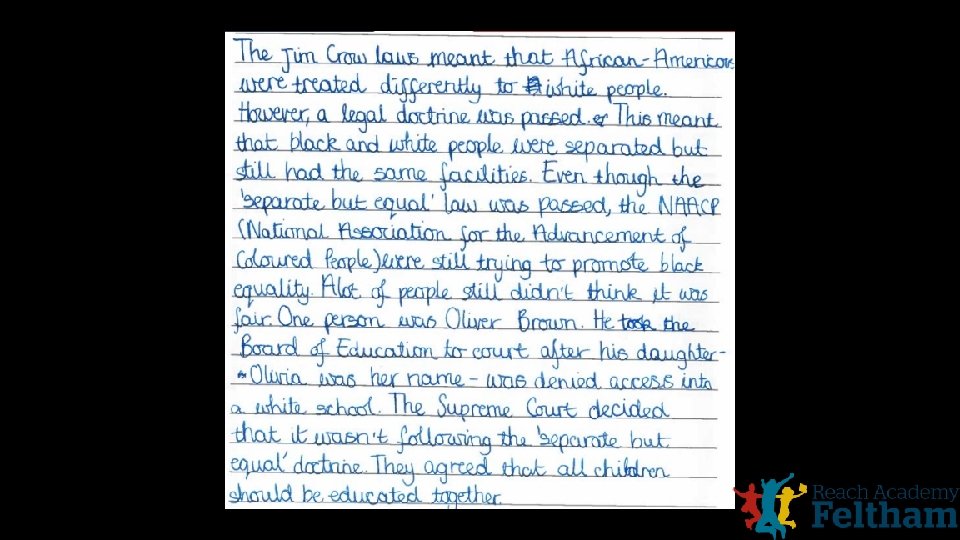 The Jim Crow laws meant that African-Americans
were treated differently to white people.
However, a legal doctrine was passed. This meant
that black and white people were separated but
still had the same facilities. Even though the
'separate but equal' law was passed, the NAACP
(National Association for the Advancement of
Coloured People) were still trying to promote black
equality. Alot of people still didn't think it was
fair. One person was Oliver Brown. He took the
Board of Education to court after his daughter -
Olivia was her name - was denied access into
a white school. The Supreme Court decided
that it wasn't following the 'separate but
equal' doctrine. They agreed that all children
should be educated together.
Reach Academy
Feltham